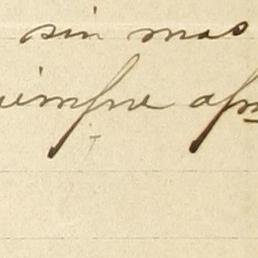 sin mas
iempre afm